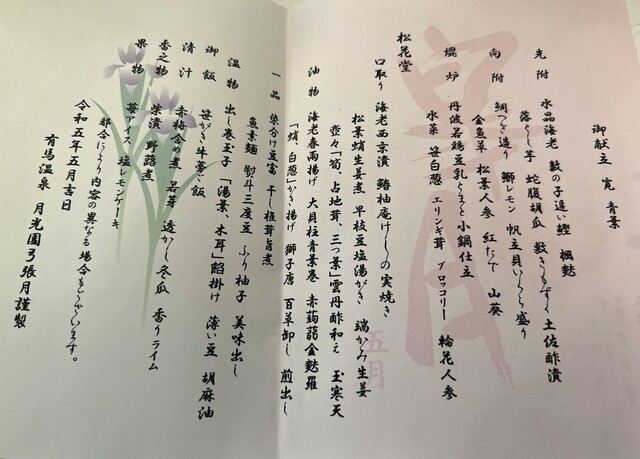 御献立 寛 青景
先附 水晶海老 数の子追い鰹 楓麩
落とし芋 蛇腹胡瓜 敷きもずく 土佐酢漬
向附 鯛へぎ造り 鰤レモン 帆立貝いくら盛り
金魚草 松葉人参 紅たで 山葵
焜炉 丹波若鶏豆乳とまと小鍋仕立
水菜 笹白葱 エリンギ茸 ブロッコリー 輪花人参
松花堂
口取り 海老西京漬 鰆柚庵けしの実焼き
松葉蛸生姜煮 早枝豆塩湯がき 端かみ生姜
壺々「筍、占地茸、三つ葉」雲丹酢和え 玉寒天
油物 海老春雨揚げ 大貝柱青景巻 赤蒟蒻金麩羅
「蛸、白葱」かき揚げ 獅子唐 百草卸し 煎出し
一品 染分け豆富 干し椎茸旨煮
魚素麺 熨斗三度豆 ふり柚子 美味出し
温物 出し巻玉子「湯葉、木耳」餡掛け 薄い豆 胡麻油
御飯 笹がき牛蒡ご飯
清汁 赤梅含め煮 若芽 透かし冬瓜 香りライム
香之物 柴漬 野蕗煮
果物 苺アイス 塩レモンケーキ
都合により内容の異なる場合もございます。
令和五年五月吉日
有馬温泉 月光園弓張月謹製
五月